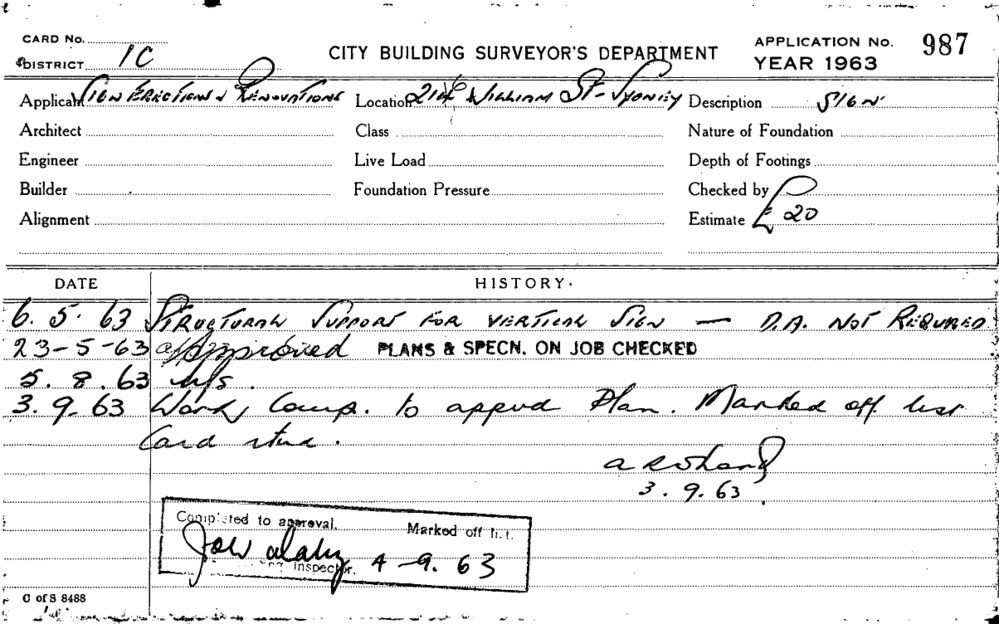 CARD No.
DISTRICT 1C
CITY BUILDING SURVEYOR'S DEPARTMENT
APPLICATION No. 987
YEAR 1963
Applicant SIGN ERECTIONS & RENOVATIONS Location 214 WILLIAM ST - SYDNEY Description SIGN
Architect Class Nature of Foundation
Engineer Live Load Depth of Footings
Builder Foundation Pressure Checked by
Alignment Estimate £ 20
DATE HISTORY.
6. 5. 63 STRUCTURAL SUPPORT FOR VERTICAL SIGN — D.A. NOT REQUIRED
23-5-63 approved PLANS & SPECN. ON JOB CHECKED
5. 8. 63 n/s.
3. 9. 63 Work Comp. to appvd Plan. Marked off list
Card
3. 9. 63.
Completed to approval. Marked off list.
Inspector. 4-9. 63
C of S 8488